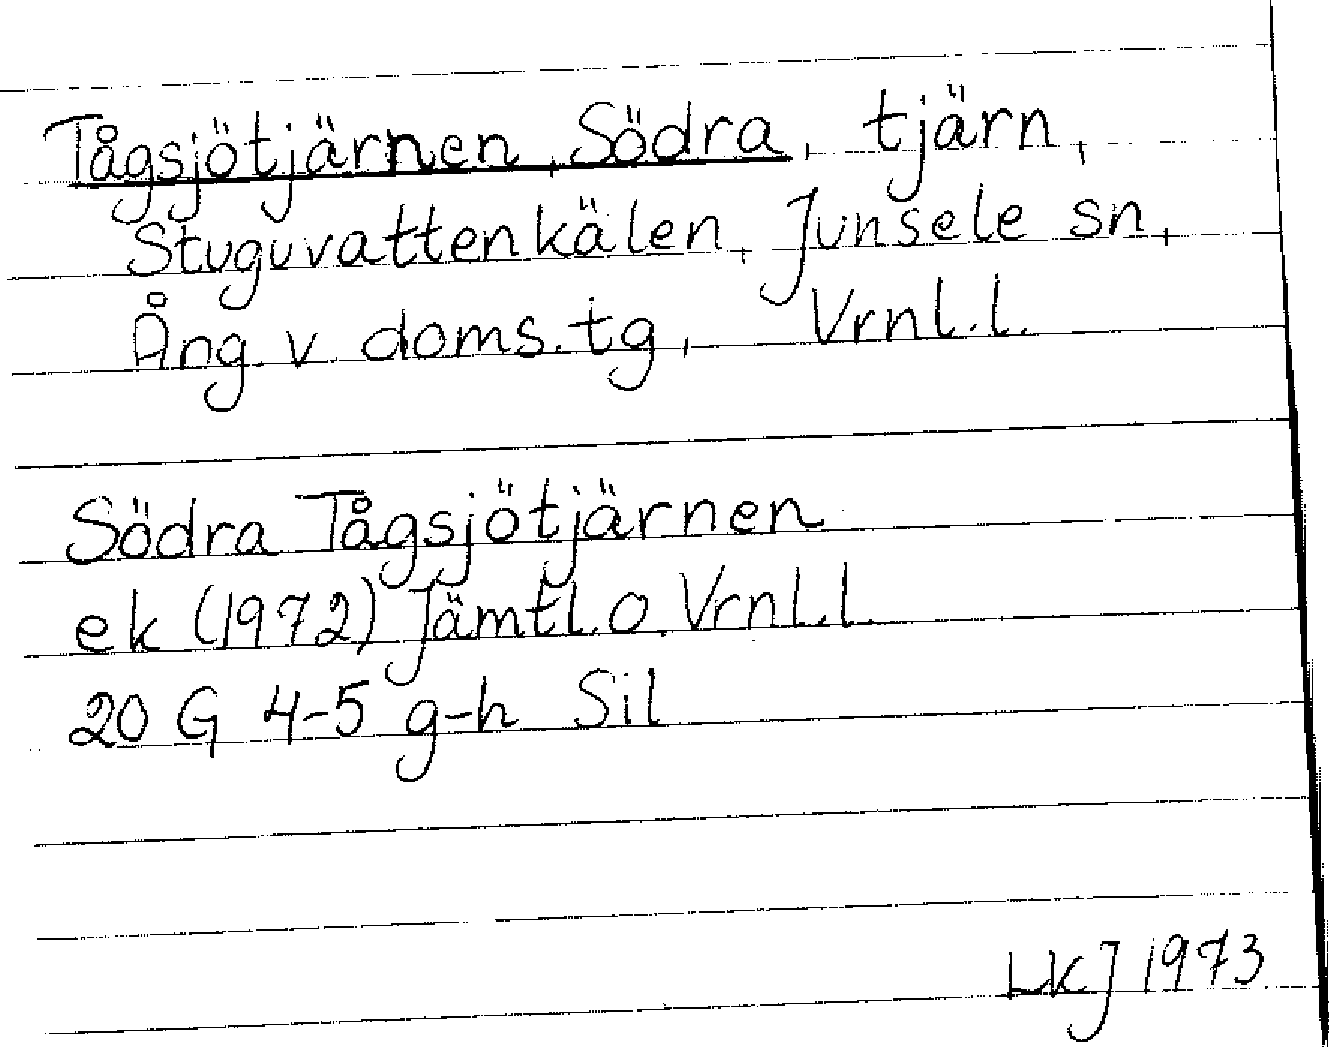 Tågsjötjärnen, Södra, tjärn,
Stuguvattenkälen, Junsele sn,
Ång. v. doms. tg, Vrnl. l.
Södra Tågsjötjärnen
ek (1972) Jämtl. o. Vrnl. l.
20 G 4-5 g-h Sil
LKJ 1973